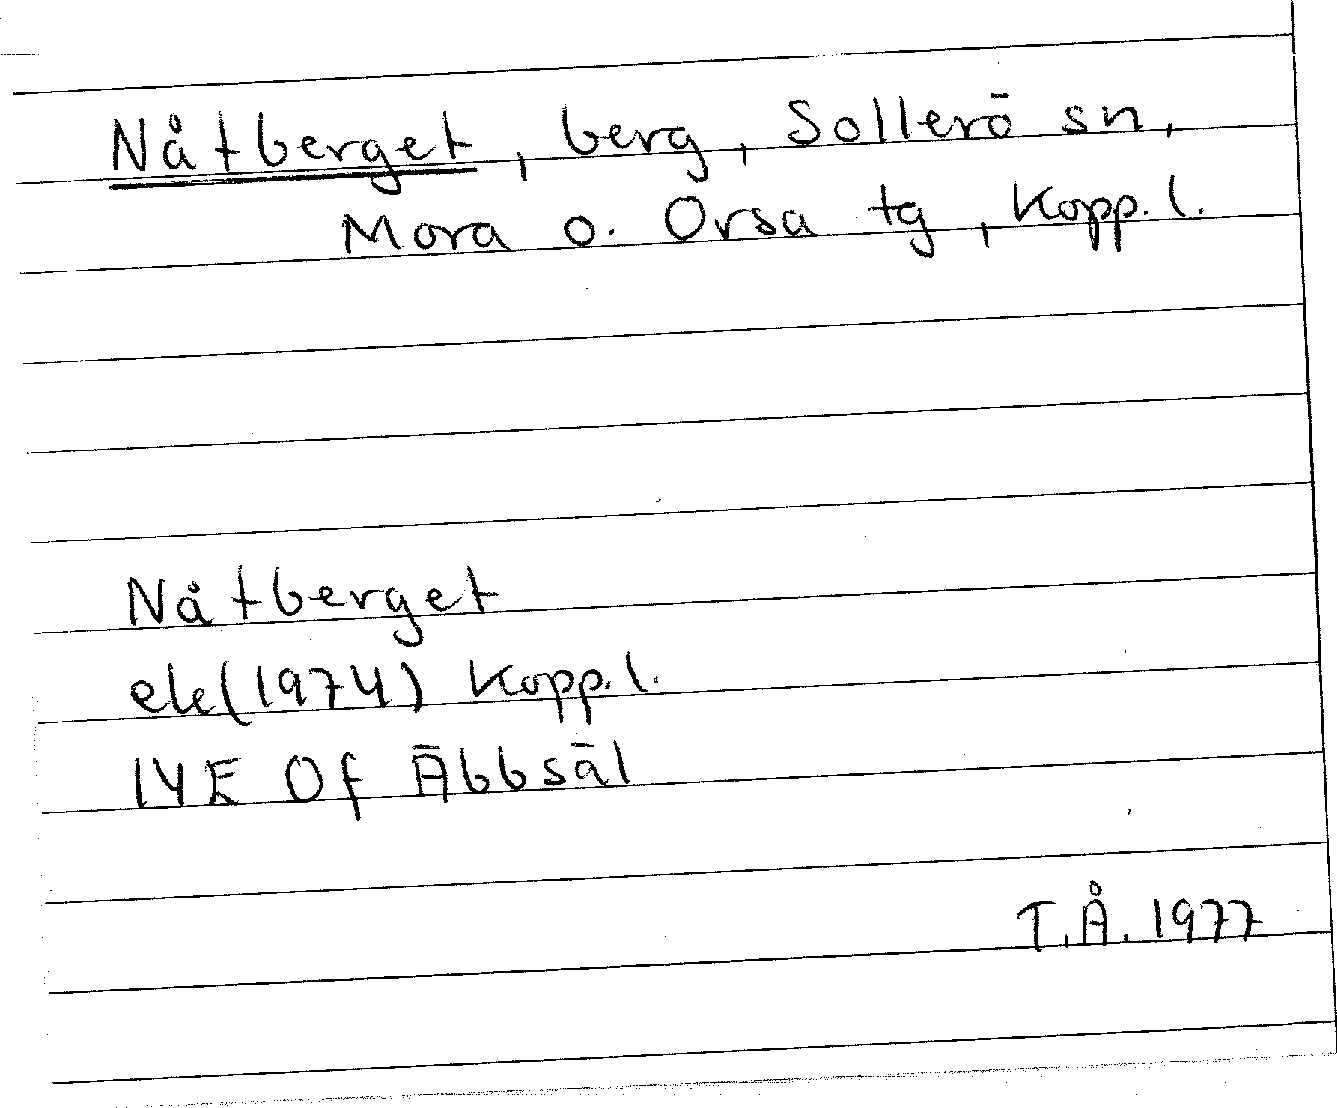 Nåtberget, berg, Sollerö sn,
Mora o. Orsa tg, Kopp. l.
Nåtberget
ek(1974) Kopp. l.
14E 0f Äbbsäl
T.Å. 1977